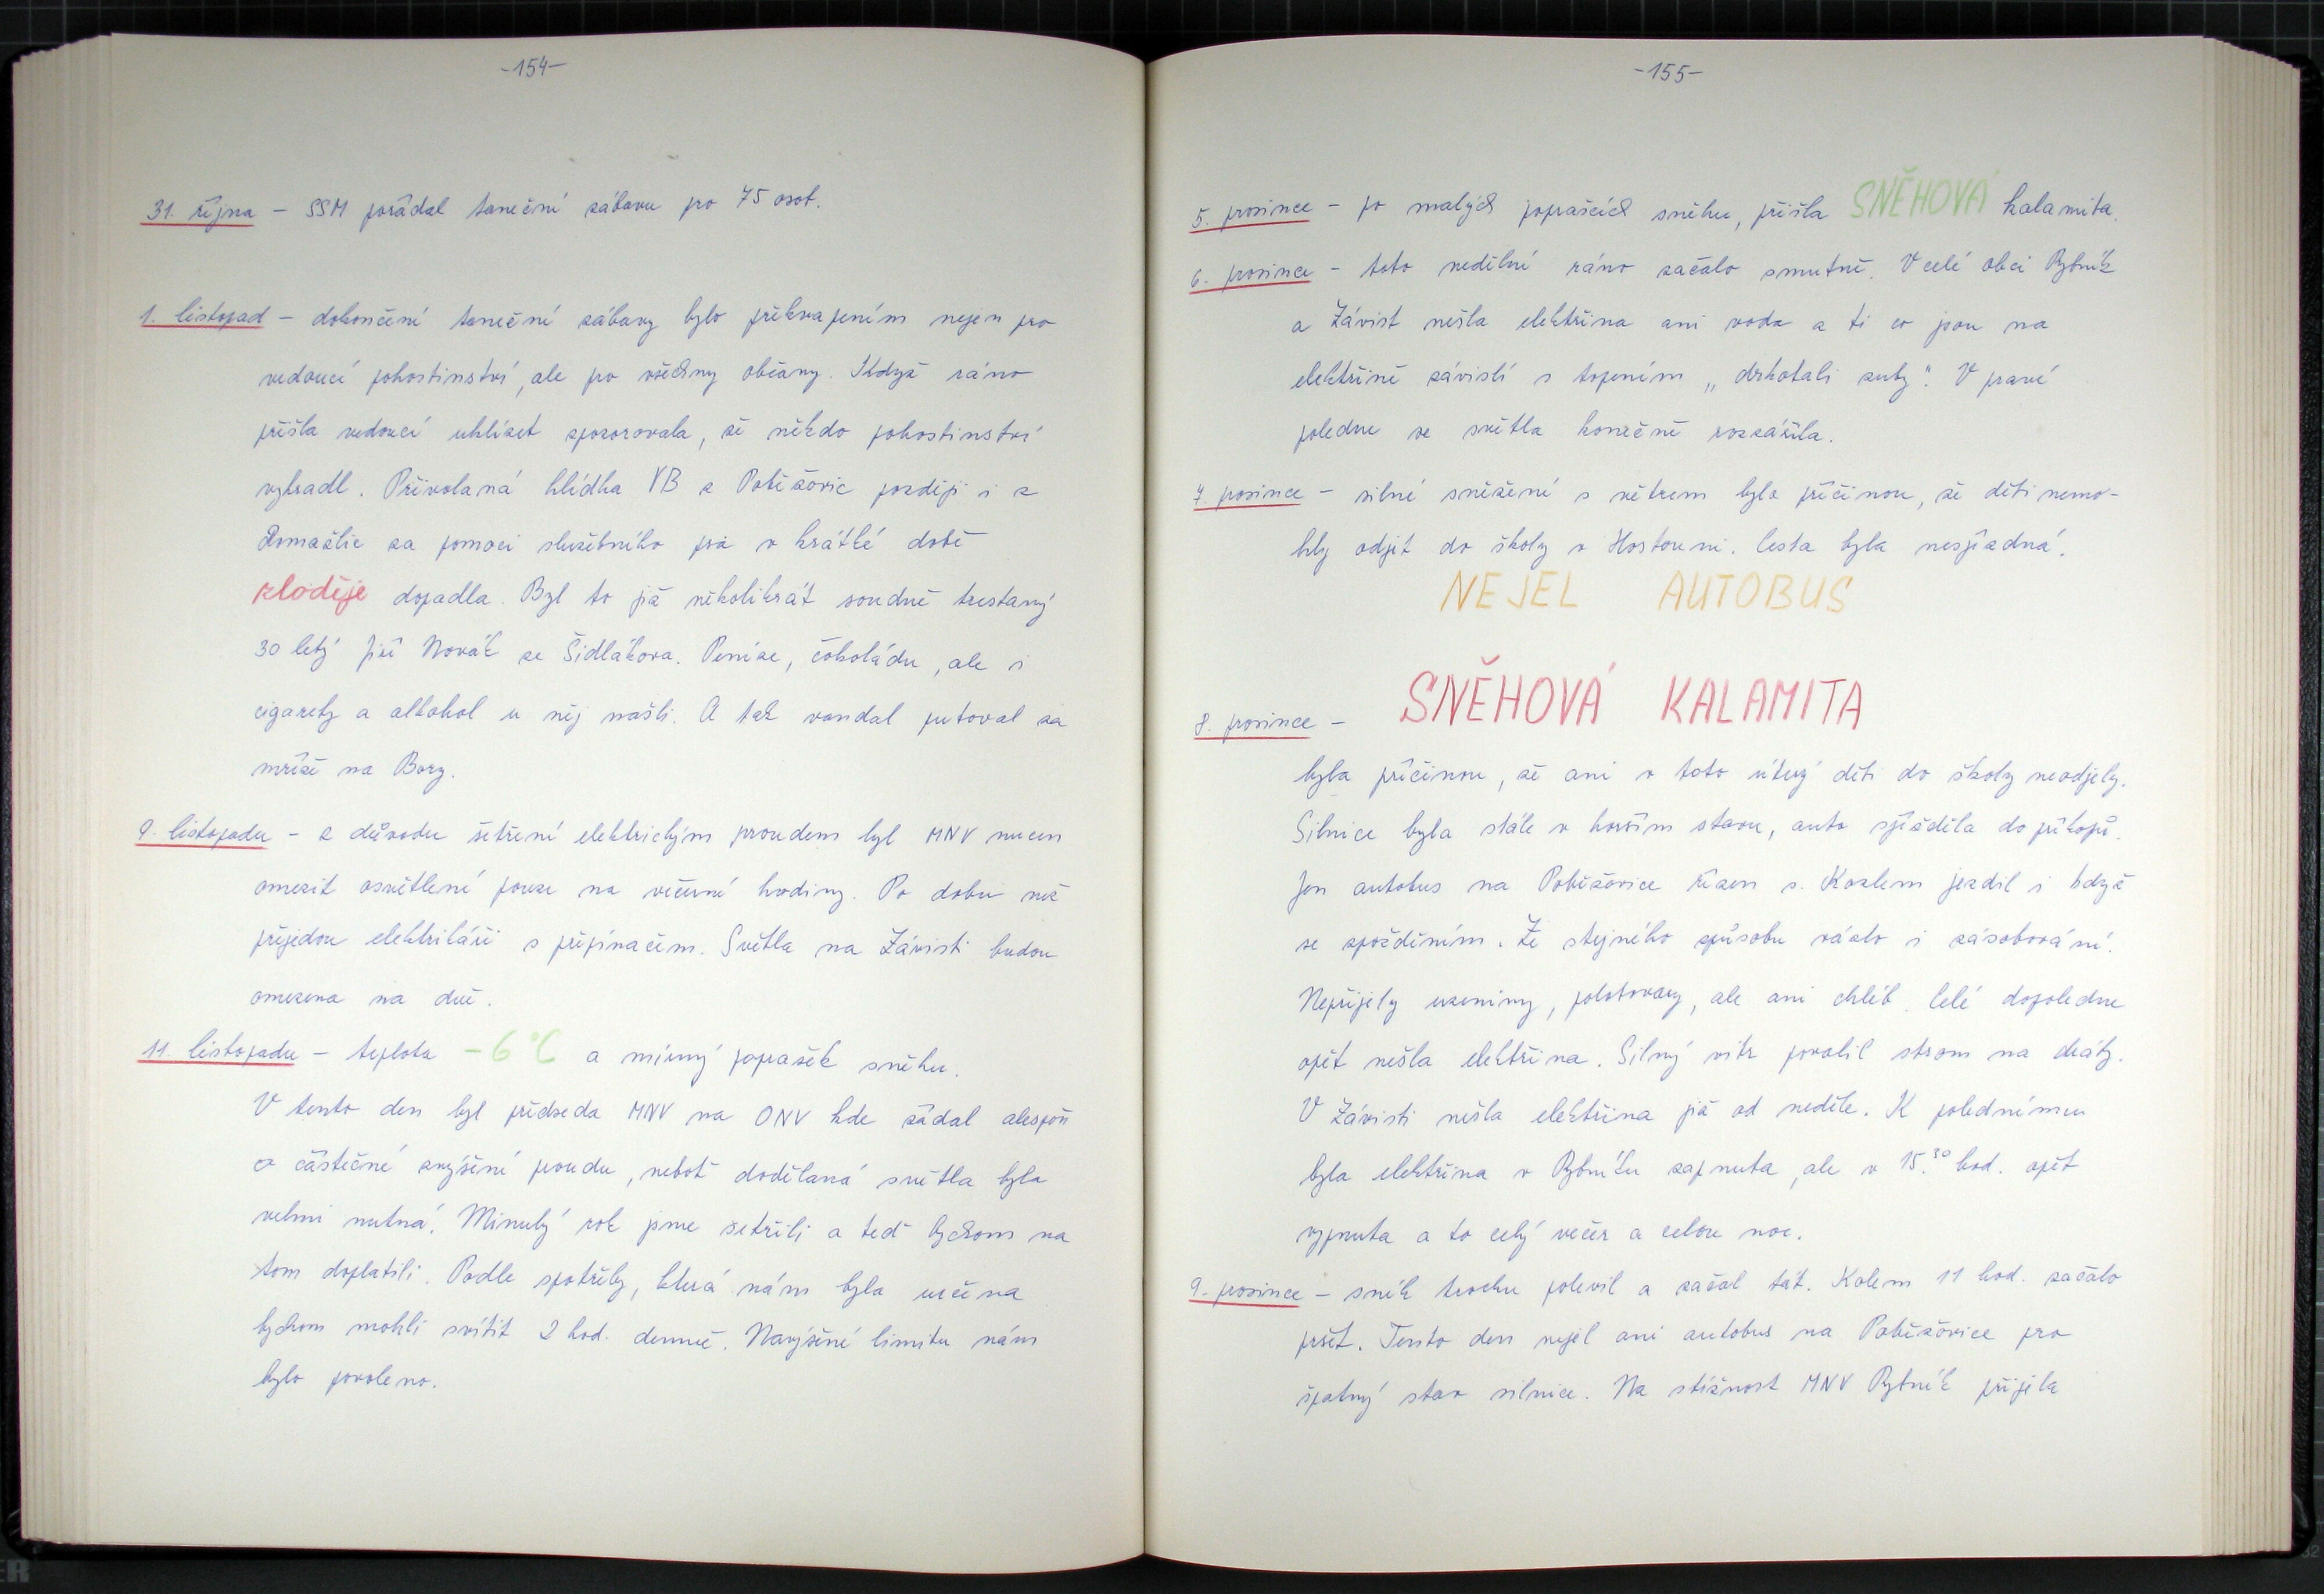 -154-
31. října - SSM pořádal taneční zábavu pro 75 osob.
1. listopad - dokončení taneční zábavy bylo překvapením nejen pro
vedoucí pohostinství, ale pro všechny občany. Když ráno
přišla vedoucí uklízet zpozorovala, že někdo pohostinství
vykradl. Přivolaná hlídka VB z Poběžovic později i z
Domažlic za pomoci služebního psa v krátké době
zloděje dopadla. Byl to již několikrát soudně trestaný
30 letý Jiří Novák ze Šidlákova. Peníze, čokoládu, ale i
cigarety a alkohol u něj našli. A tak vandal putoval za
mříže na Bory.
9. listopadu - z důvodu šetření elektrickým proudem byl MNV nucen
omezit osvětlení pouze na večerní hodiny. Po dobu než
přijedou elektrikáři s přepínačem. Světla na Závisti budou
omezena na dvě.
11. listopadu - teplota -6°C a mírný poprašek sněhu.
V tento den byl předseda MNV na ONV kde žádal alespoň
o částečné zvýšení proudu, neboť dodělaná světla byla
velmi nutná. Minulý rok jsme šetřili a teď bychom na
tom doplatili. Podle spotřeby, která nám byla určena
bychom mohli svítit 2 hod. denně. Navýšení limitu nám
bylo povoleno.
-155-
5. prosince - po malých poprašcích sněhu, přišla SNĚHOVÁ kalamita.
6. prosince - toto nedělní ráno začalo smutně. V celé obci Rybník
a Závist nešla elektřina ani voda a ti co jsou na
elektřině závislí s topením "drkotali zuby". V pravé
poledne se světla konečně rozzářila.
7. prosince - silné sněžení s větrem bylo příčinou, že děti nemo-
hly odjet do školy v Hostouni. Cesta byla nesjízdná.
NEJEL AUTOBUS
8. prosince - SNĚHOVÁ KALAMITA
byla příčinou, že ani v toto úterý děti do školy neodjely.
Silnice byla stále v horším stavu, auta sjížděla do příkopů.
Jen autobus na Poběžovice řízen s. Kozlem jezdil i když
se zpožděním. Ze stejného způsobu vázlo i zásobování.
Nepřijely uzeniny, polotovary, ale ani chléb. Celé dopoledne
opět nešla elektřina. Silný vítr povalil strom na dráty.
V Závisti nešla elektřina již od neděle. K polednímu
byla elektřina v Rybníku zapnuta, ale v 15.30 hod. opět
vypnuta a to celý večer a celou noc.
9. prosince - sníh trochu polevil a začal tát. Kolem 11 hod. začalo
pršet. Tento den nejel ani autobus na Poběžovice pro
špatný stav silnice. Na stížnost MNV Rybník přijela